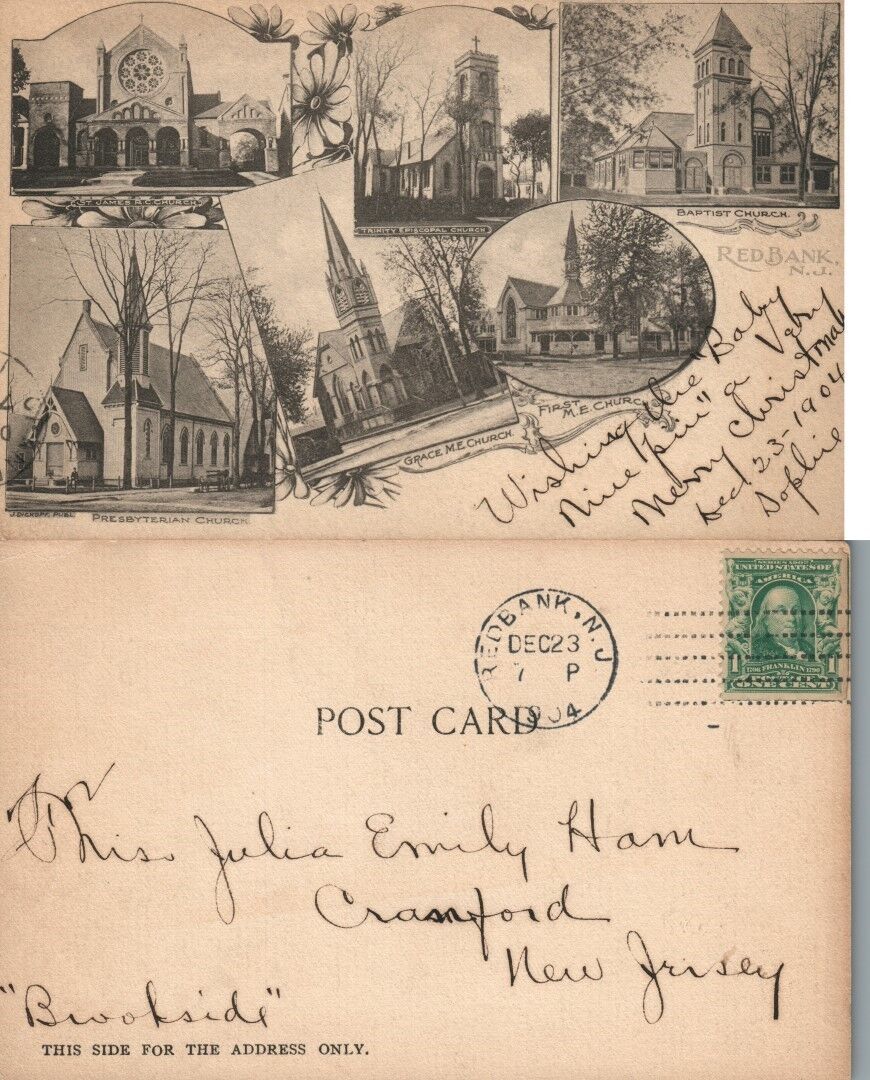 ST. JAMES R.C. CHURCH.
TRINITY EPISCOPAL CHURCH
BAPTIST CHURCH.
RED BANK,
N.J.
PRESBYTERIAN CHURCH.
J. DICKOPF, PUBL.
GRACE M.E. CHURCH.
FIRST
M.E. CHURCH
Wishing the "Baby
Nine pin" a Very
Merry Christmas
Dec. 23-1904
Sophie
RED BANK, N.J.
DEC 23
7 P
1904
SERIES 1902
UNITED STATES OF
AMERICA
1706 FRANKLIN 1790
POSTAGE
1 ONE CENT 1
POST CARD
Miss Julia Emily Ham
Cranford
New Jersey
"Brookside"
THIS SIDE FOR THE ADDRESS ONLY.